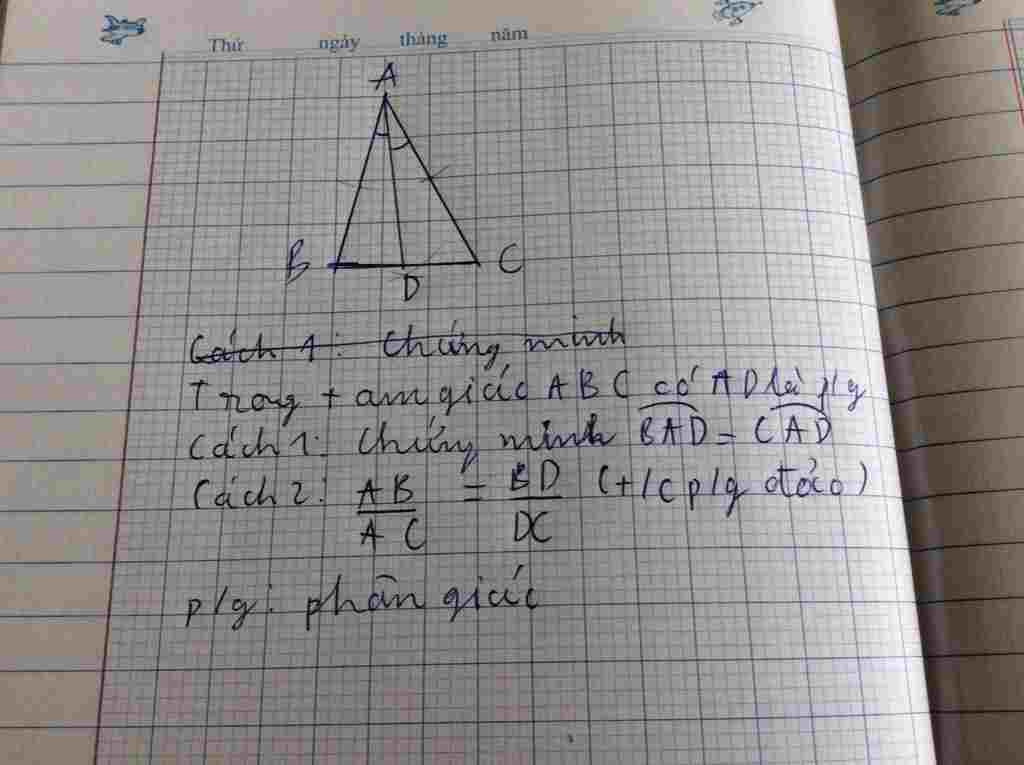 Thứ ngày tháng năm
A
B D C
Cách 1: Chứng minh
Trong tam giác ABC có AD là p/g
Cách 1: Chứng minh BAD = CAD
Cách 2: AB/AC = BD/DC (t/c p/g đảo)
p/g: phân giác